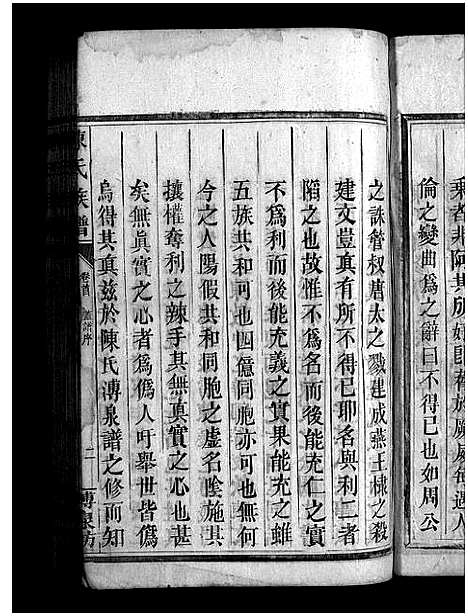 乘者非阿其所
倫之變曲爲之辭曰不得已也如周公
之誅管叔唐太之戮建成燕王棣之殺
建文豈真有不得已耶名與利二者
陷之也故惟不爲名而後能充仁之實
不爲利而後能充義之實果能充之雖
五族共和可也四億同胞亦可也無何
今之人陽假共和同胞之虛名陰施其
攘權奪利之辣手其無真實之心也甚
矣無真實之心者爲僞人吁舉世皆僞
烏得其真茲於陳氏溥泉譜之修而知
陳氏族譜
卷首
譜序
二
溥泉坊